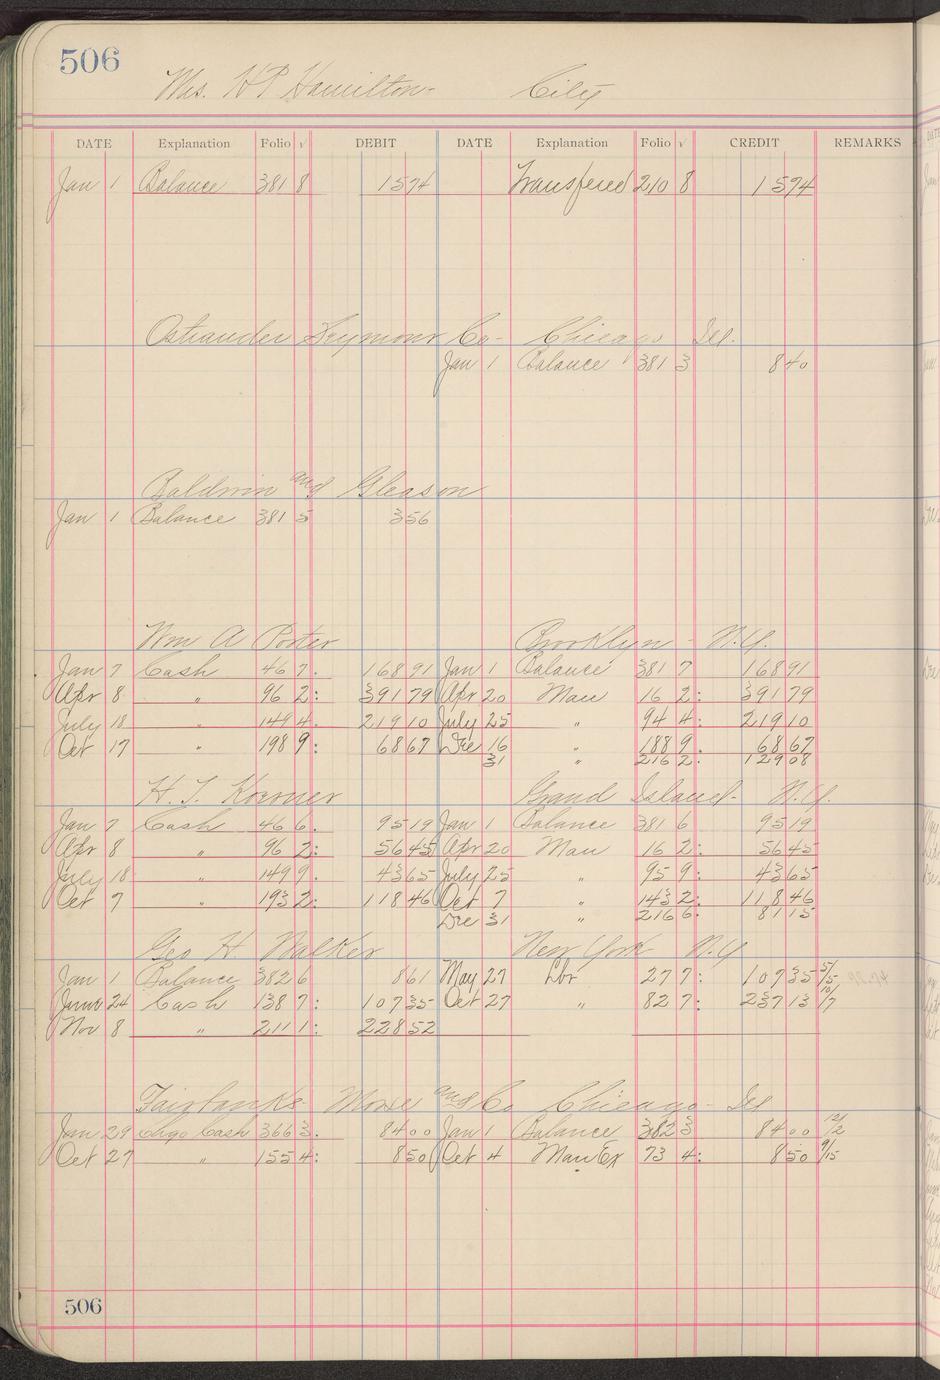 506
Mrs. H P Hamilton- City
DATE Explanation Folio √ DEBIT DATE Explanation Folio √ CREDIT REMARKS
Jan 1 Balance 381 8 15 74 Transfered 210 8 15 74
Ostrander Seymour Co- Chicago Ill.
Jan 1 Balance 381 3 8 40
Baldwin and Gleason
Jan 1 Balance 381 5 3 56
Wm A Porter Brooklyn - N.Y.
Jan 7 Cash 46 7. 168 91 Jan 1 Balance 381 7 168 91
Apr 8 " 96 2: 391 79 Apr 20 Man 16 2: 391 79
July 18 " 149 4. 219 10 July 25 " 94 4: 219 10
Oct 17 " 198 9: 68 67 Dec 16 " 188 9. 68 67
31 " 216 2: 129 08
H. T. Koerner Grand Island- N.Y.
Jan 7 Cash 46 6. 95 19 Jan 1 Balance 381 6 95 19
Apr 8 " 96 2: 56 45 Apr 20 Man 16 2: 56 45
July 18 " 149 9. 43 65 July 25 " 95 9: 43 65
Oct 7 " 193 2: 118 46 Oct 7 " 143 2: 118 46
Dec 31 " 216 6: 81 15
Geo H. Walker New York N.Y
Jan 1 Balance 382 6 8 61 May 27 Lbr 27 7: 107 35 5/5
June 24 Cash 138 7: 107 35 Oct 27 " 82 7: 237 13 10/7
Nov 8 " 211 1: 228 52
Fairbanks Morse and Co Chicago- Ill
Jan 29 Chgo Cash 366 3. 84 00 Jan 1 Balance 382 3 84 00 12/2
Oct 27 " 155 4: 8 50 Oct 4 Man Ex 73 4: 8 50 9/15
506